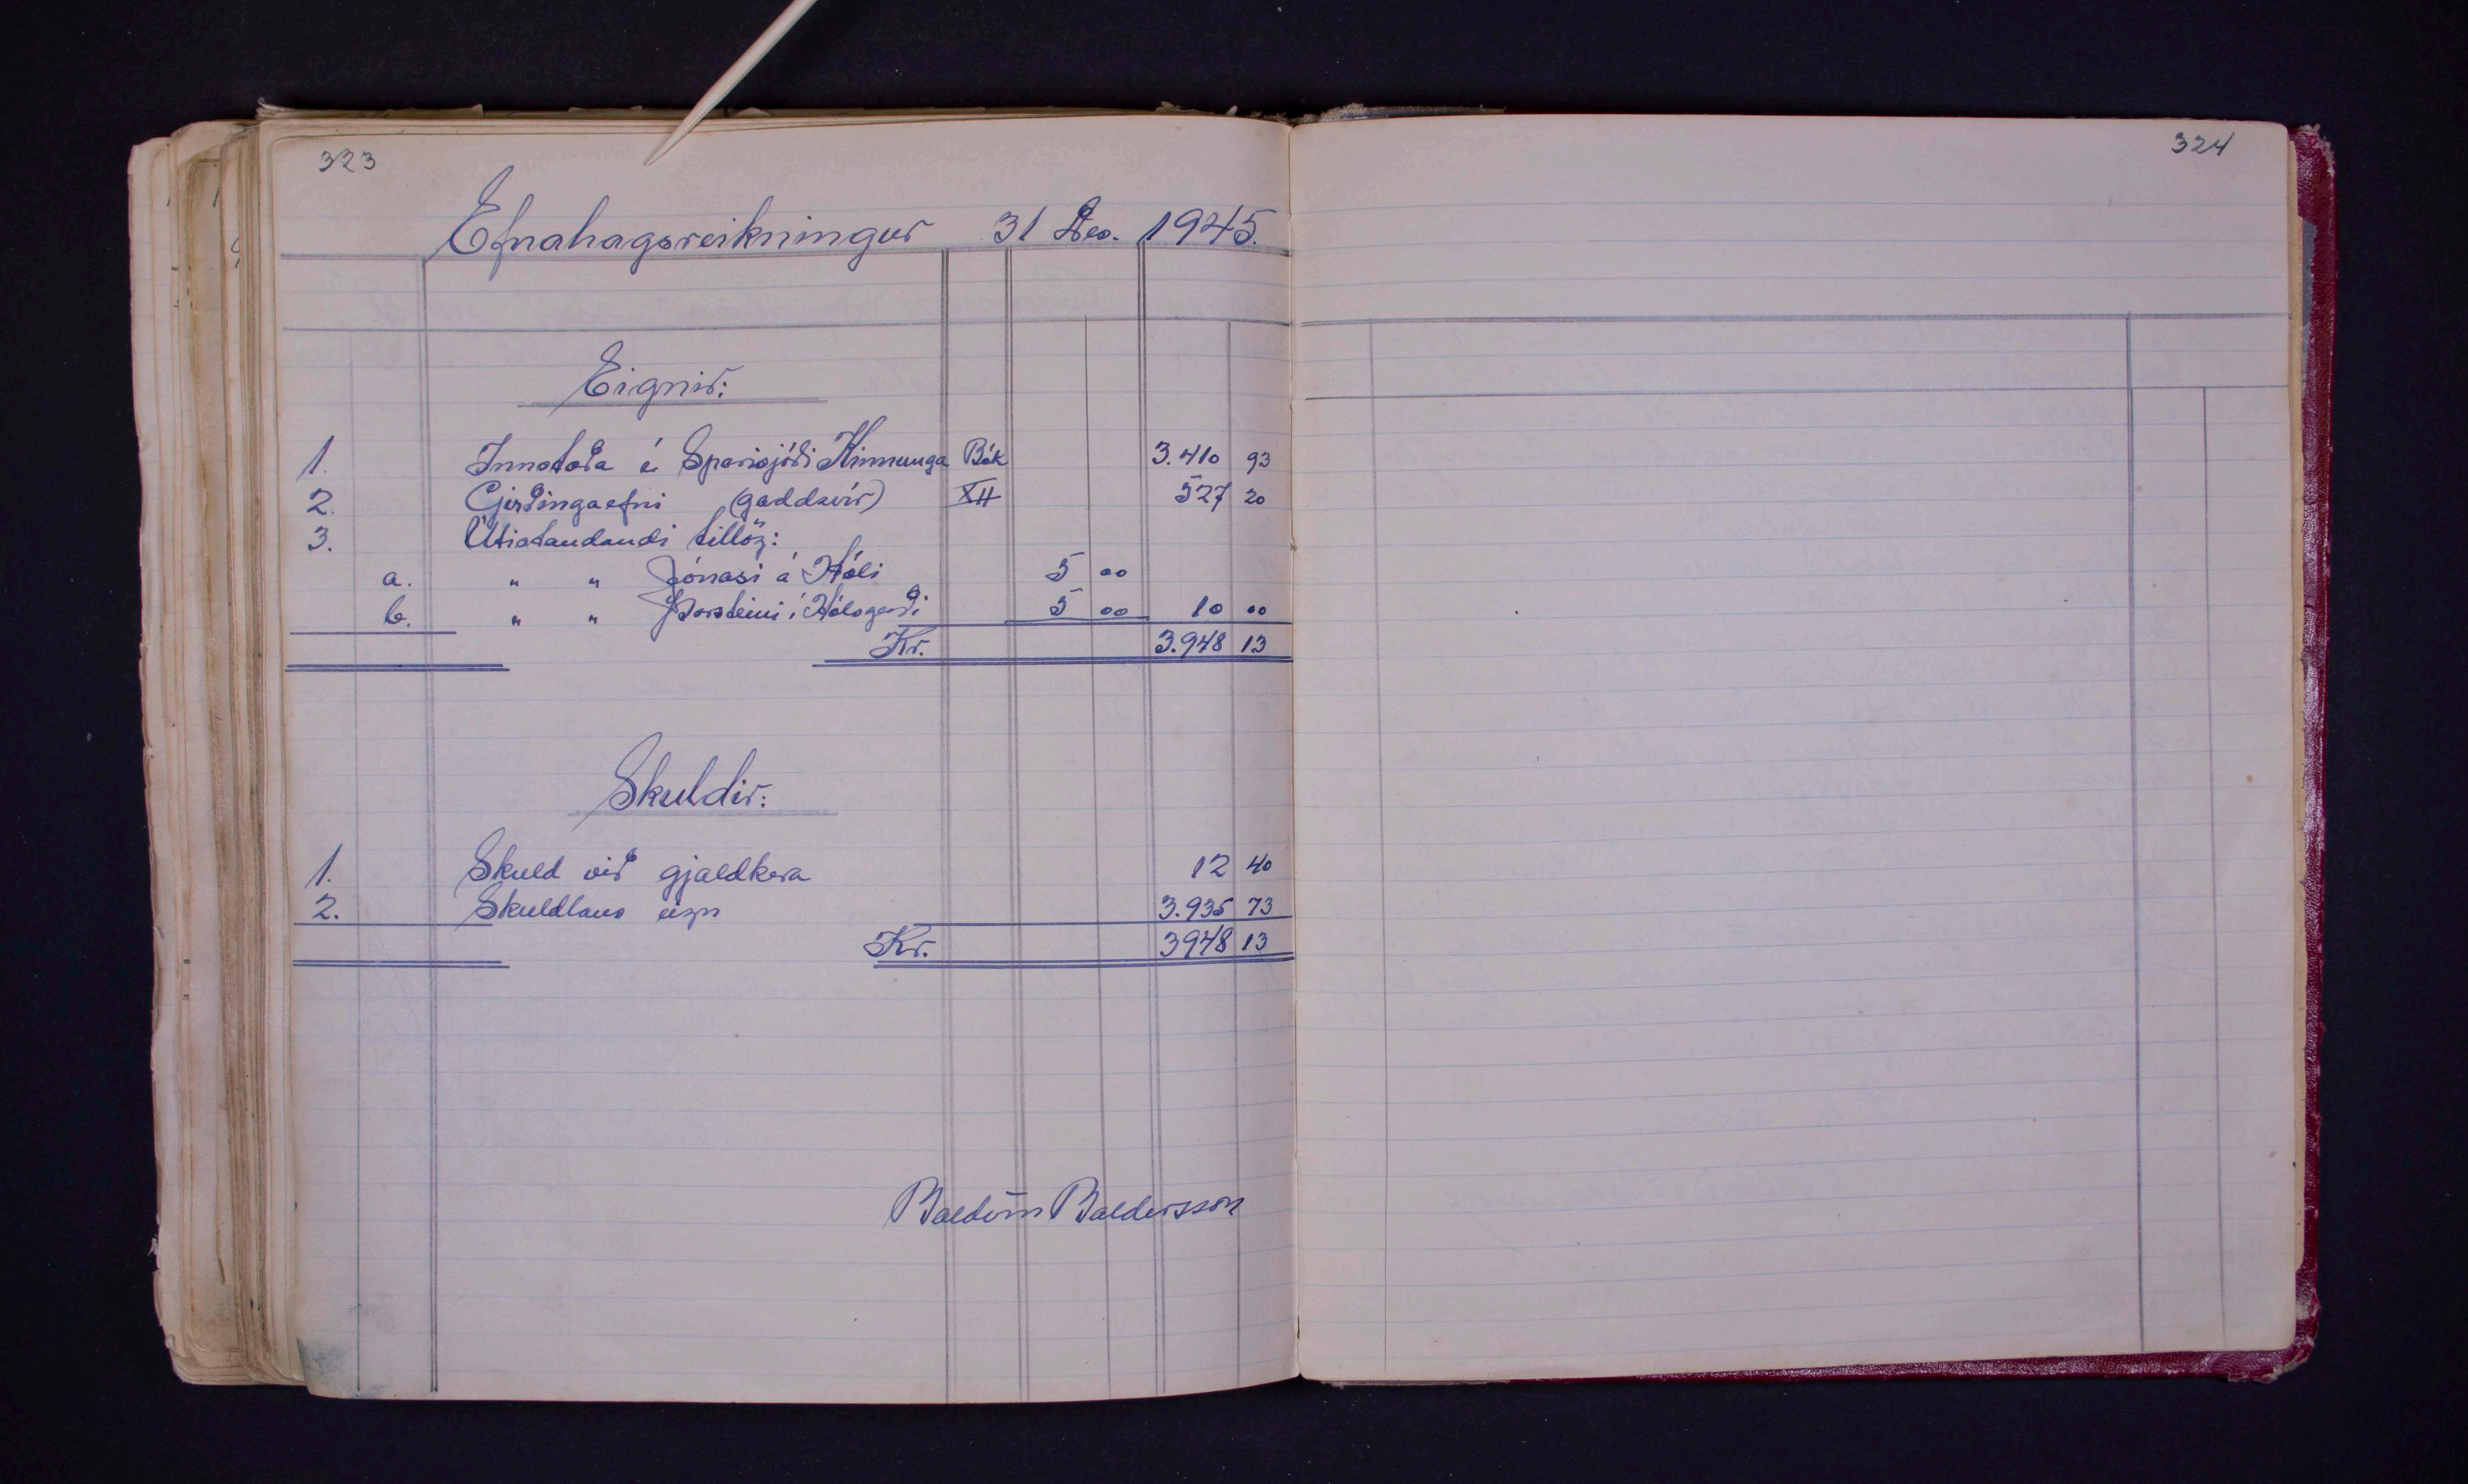 323
Efnahagsreikningur 31 Des. 1945.
Eignir:
1. Innstæða í Sparisjóði Kinnunga Bók 3.410 93
2. Girðingaefni (gaddavír) XII 527 20
3. Útistandandi tillög:
a. " " Jónasi á Hóli 5 00
b. " " Þorsteini í Hólsgerði 5 00 10 00
Kr. 3.948 13
Skuldir:
1. Skuld við gjaldkera 12 40
2. Skuldlaus eign 3.935 73
Kr. 3948 13
Baldvin Baldursson
324